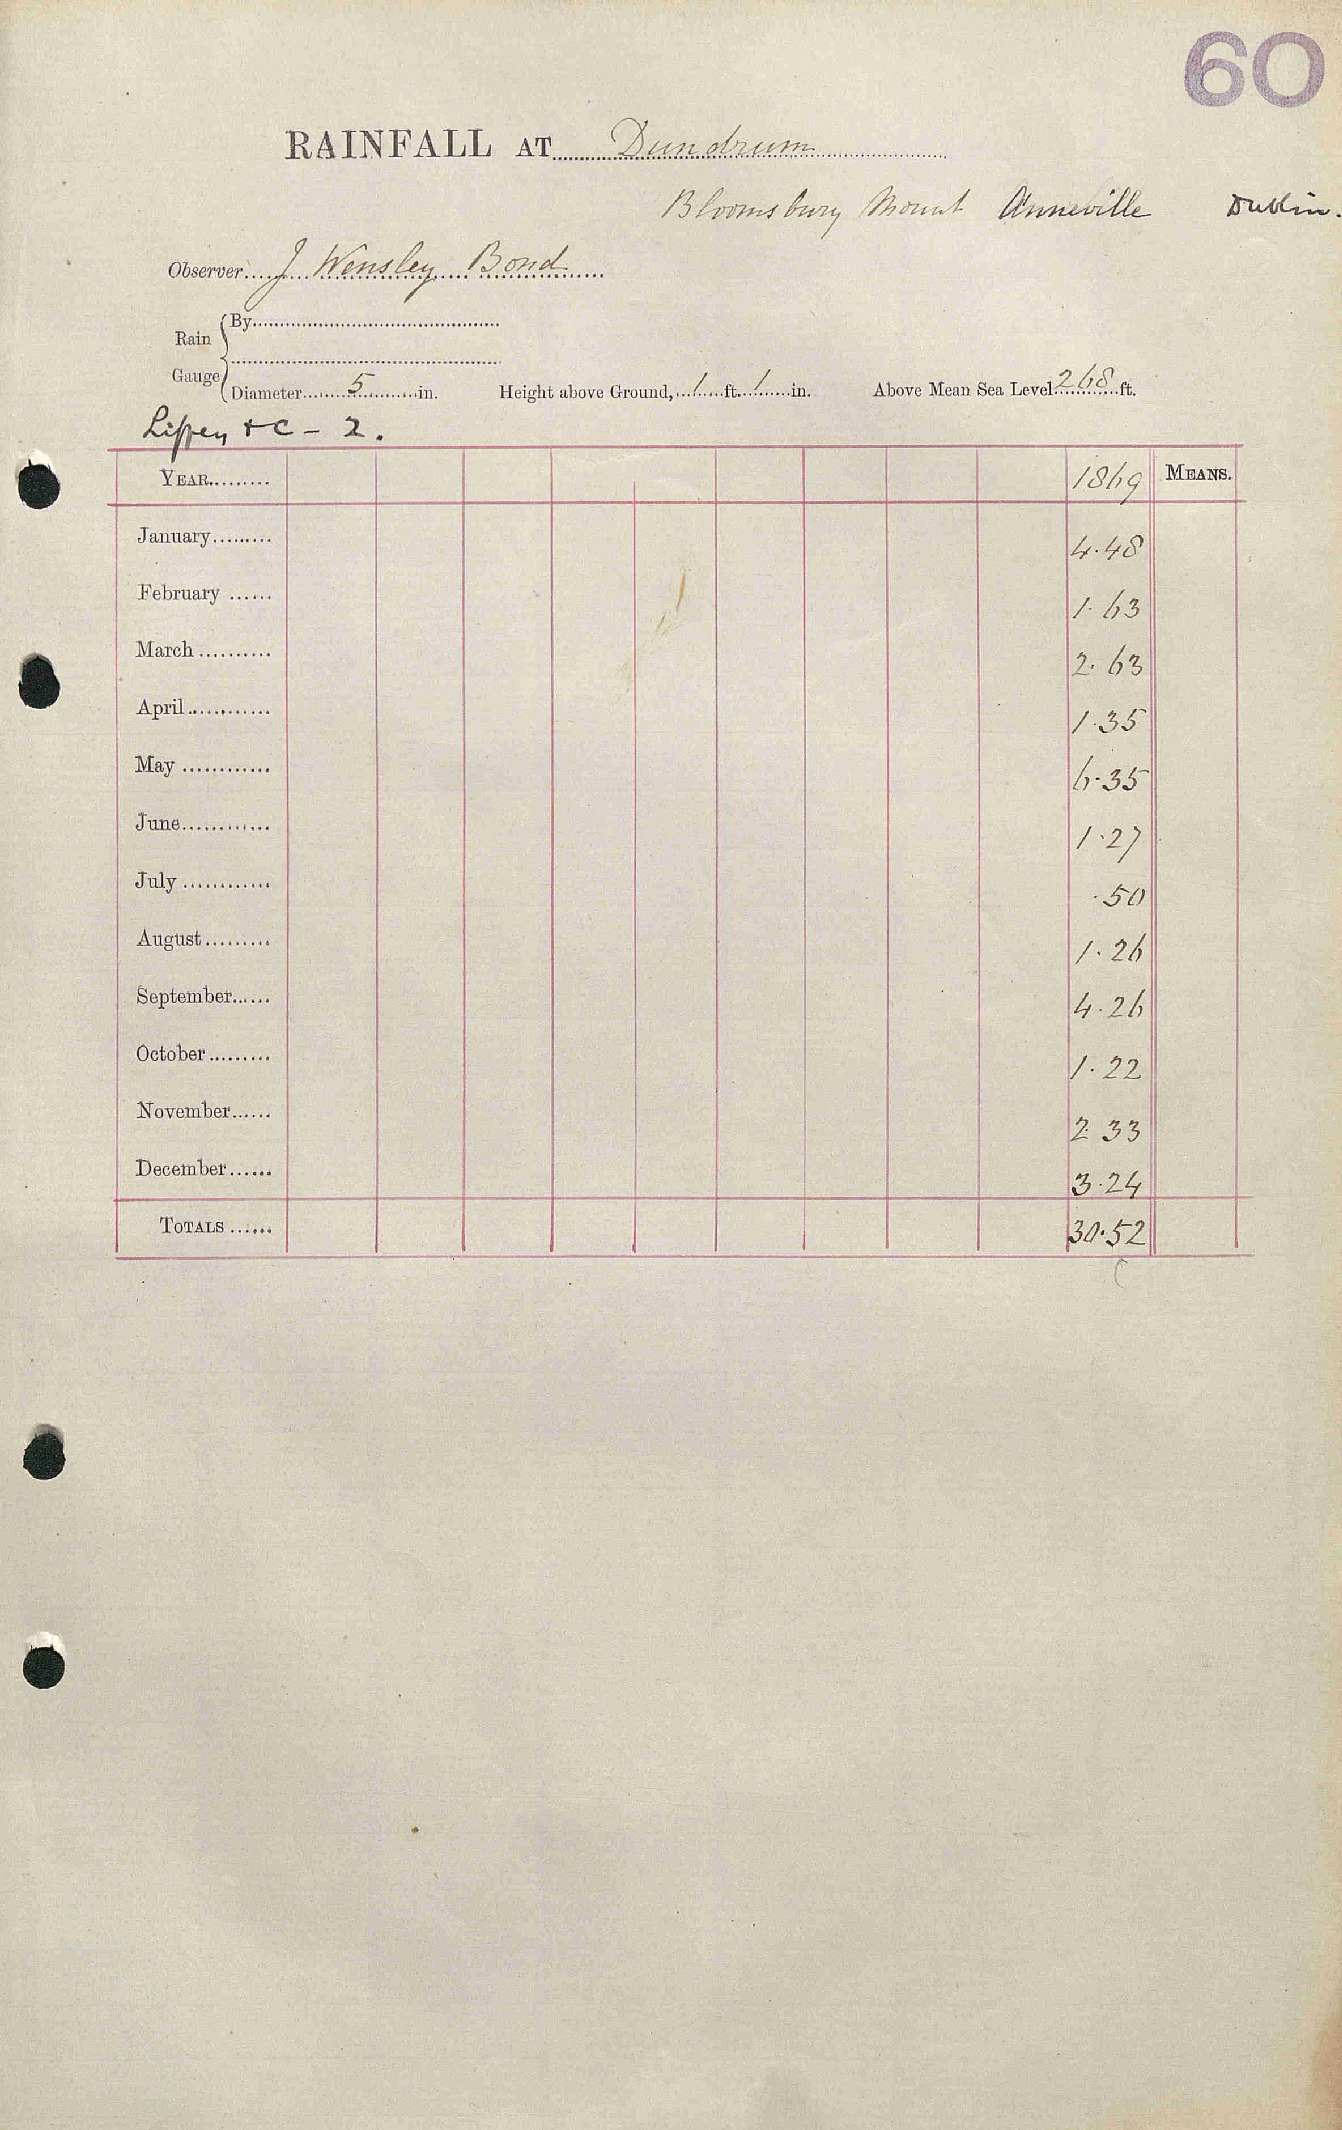 60
RAINFALL AT Dundrum
Bloomsbury Mount Anneville Dublin.
Observer J Wensley Bond
Rain Gauge
By
Diameter 5 in. Height above Ground, 1 ft. 1 in. Above Mean Sea Level 268 ft.
Liffey & C - 2.
YEAR 1869 MEANS.
January 4.48
February 1.63
March 2.63
April 1.35
May 6.35
June 1.27
July .50
August 1.26
September 4.26
October 1.22
November 2.33
December 3.24
TOTALS 30.52
C